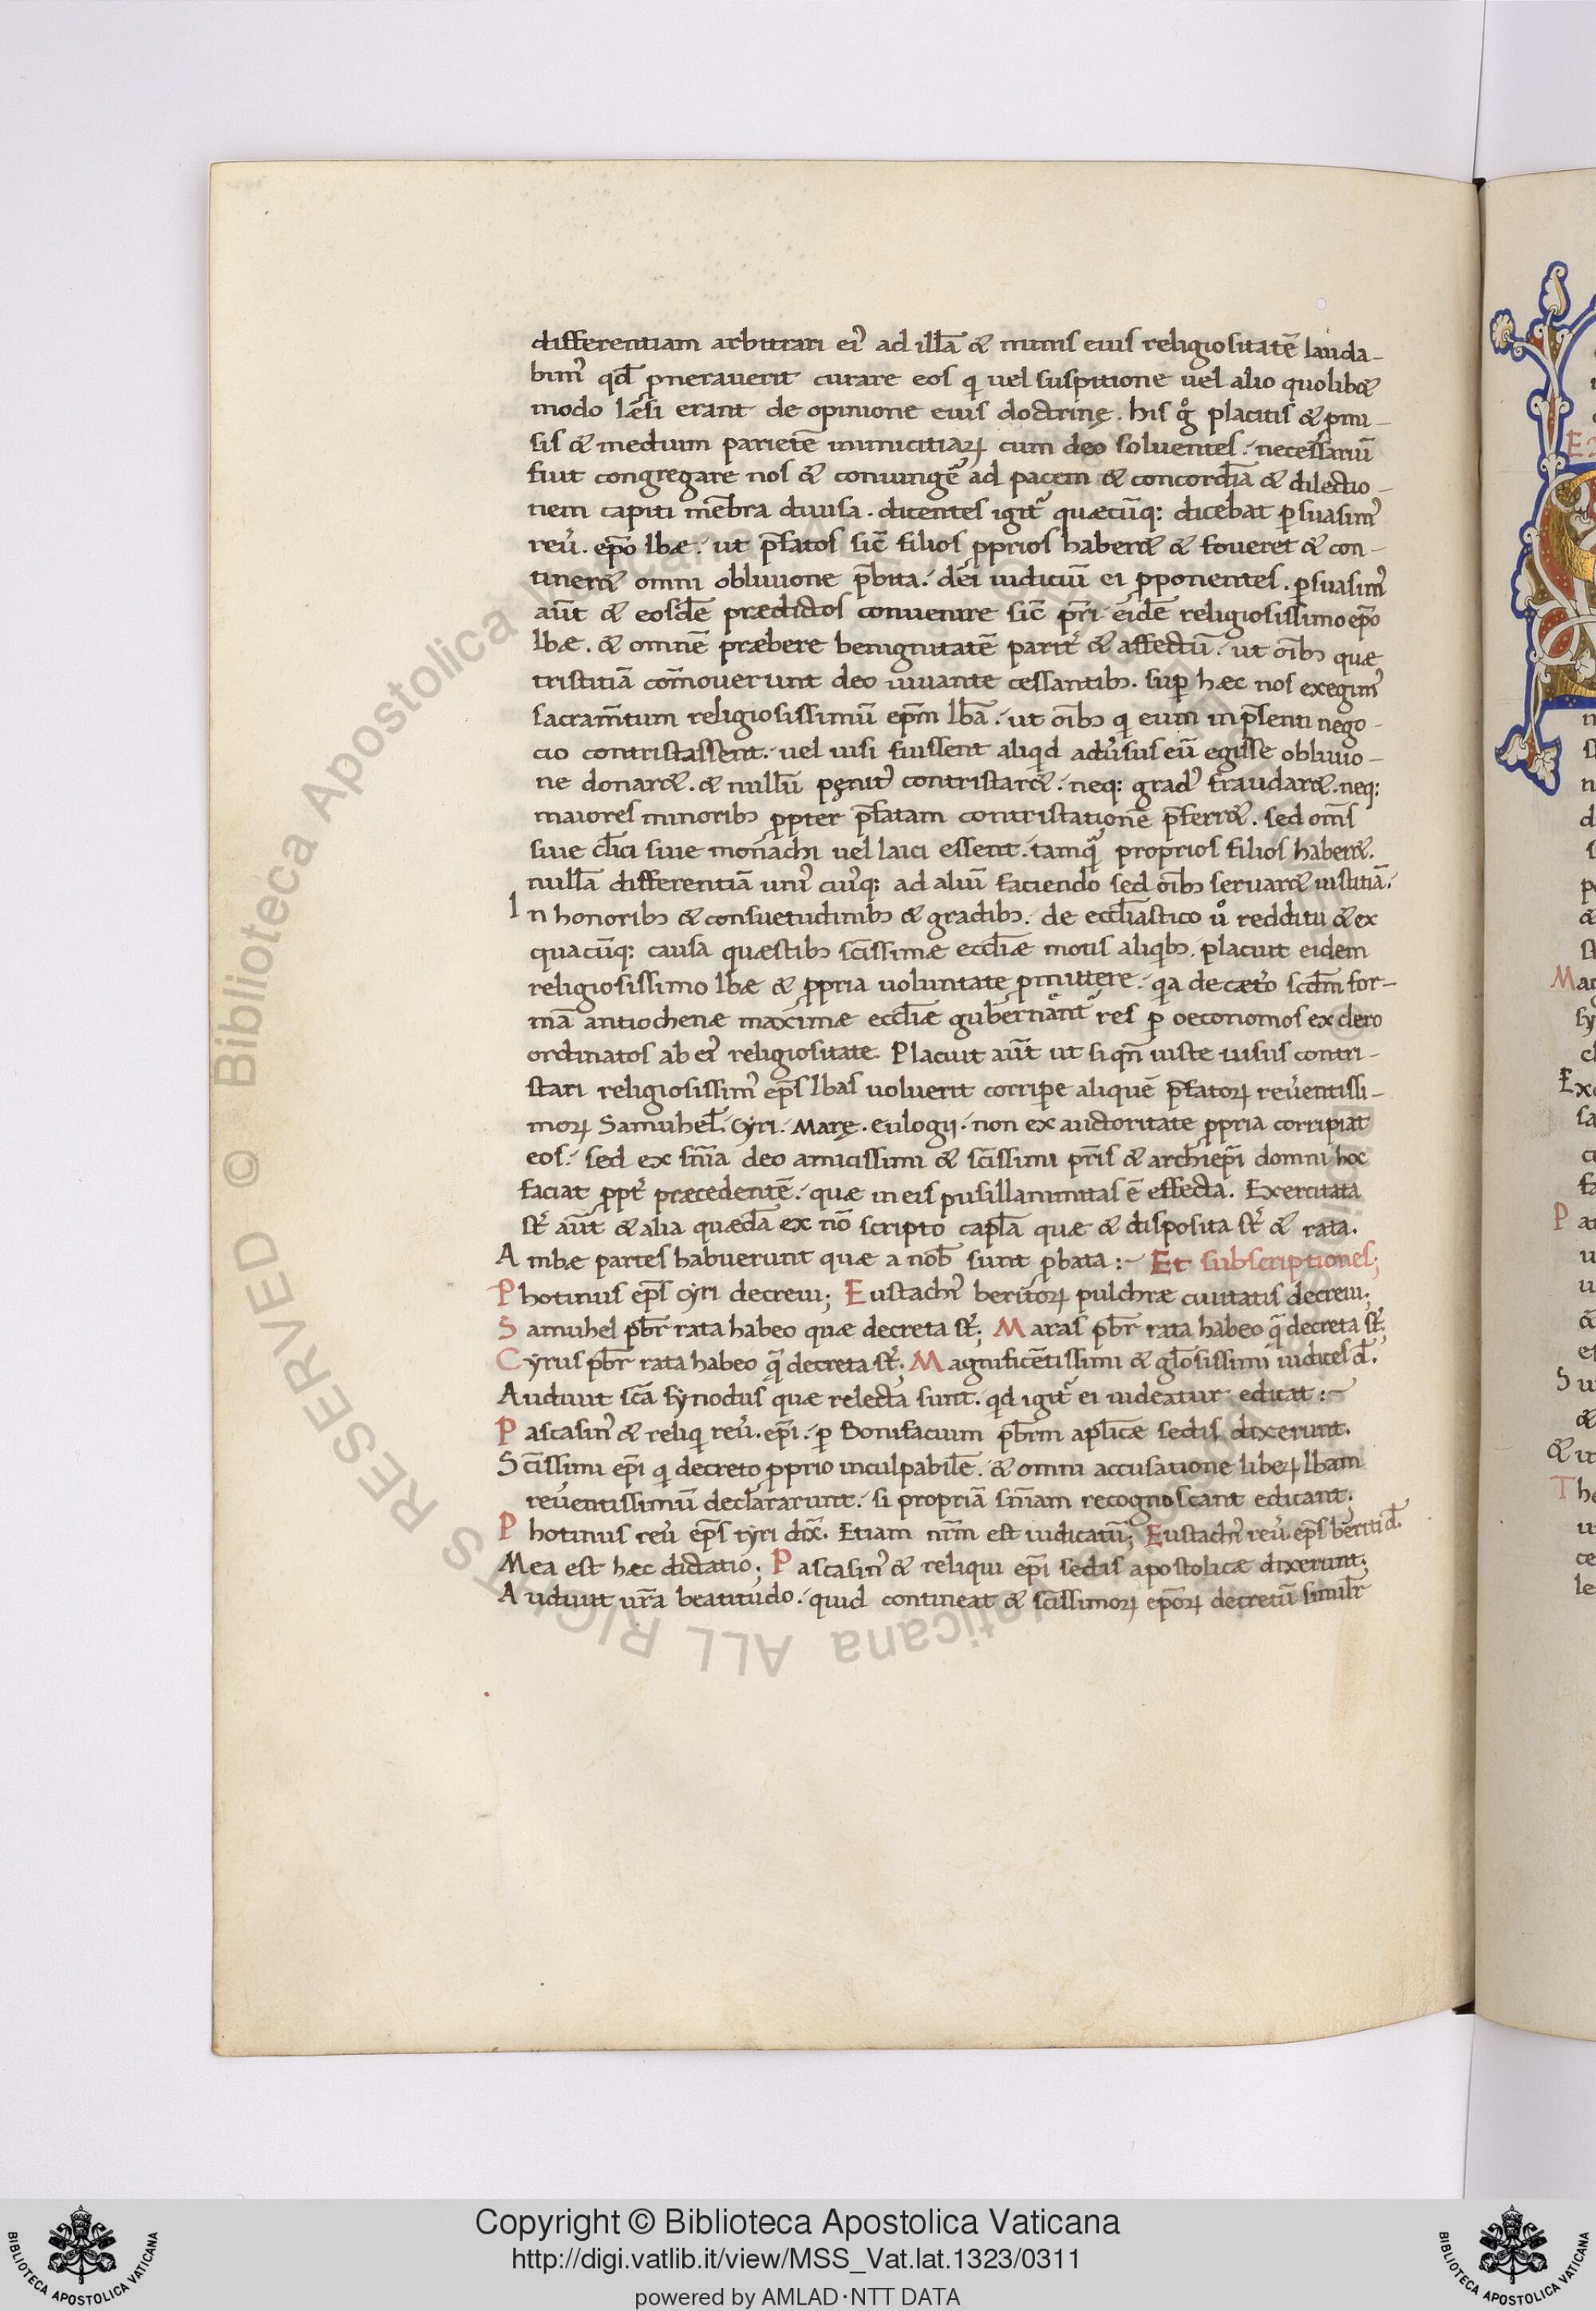 differentiam arbitrari ei᾽ ad illā & nimis eius religiositatē lauda-
bim᾽ qđ ꝓnerauerit curare eos q uel suspitione uel alio quolib&
modo lęsi erant de opinione eius doctrinę. his gͦ placitis & ꝓmi-
sis & medium parietē inimicitiaꝝ cum deo soluentes. necessariū
fuit congregare nos & coniungē ad pacem & concordiā & dilectio-
nem capiti mēbra diuisa. dicentes igit᾽ quæcūq: dicebat ꝑsuasim᾽
reu᾽. ep̄o Ibæ. ut p̄fatos sic̄ filios ꝓprios haber& & foueret & con-
tiner& omni obliuione p̄bita. dei iudiciū ei ꝓponentes. ꝑsuasim᾽
aūt & eosdē prædictos conuenire sic̄ pr̄i eidē religiosissimo ep̄o
Ibæ. & omnē præbere benignitatē parit᾽ & affectū. ut oīb; quæ
tristitiā com̄ouerunt deo iuuante cessantib;. suꝑ hæc nos exegim᾽
sacram̄tum religiosissimū ep̄m Ibā. ut oīb; q eum in p̄senti nego-
cio contristassent. uel uisi fuissent aliqd adu᾽sus eū egisse obliuio-
ne donar&. & nullū pęnit᾽ contristar&. neq: grad᾽ fraudar&. neq:
maiores minorib; ꝓpter p̄fatam contristationē p̄ferr&. sed om̄s
siue clīci siue monachi uel laici essent. tamq̄ proprios filios haber&.
nullā differentiā uni᾽ cui᾽q: ad aliū faciendo sed oīb; seruar& iustitiā.
In honorib; & consuetudinib; & gradib;. de eccl̄iastico uͦ redditu & ex
quacūq: causa quæstib; sc̄issimæ eccl̄iæ motis aliqib;. placuit eidem
religiosissimo Ibæ & ꝓpria uoluntate ꝓmittere. qa de cæt᾽o scd̄m for-
mā antiochenæ maximæ eccl̄iæ gubernant᾽ res ꝑ oeconomos ex clero
ordinatos ab ei᾽ religiositate. Placuit aūt ut si qn̄ iuste uisus contri-
stari religiosissim᾽ ep̄s Ibas uoluerit corripe aliquē p̄fatoꝝ reu᾽entissi-
moꝝ Samuhel. Cyri. Marę. eulogij. non ex auctoritate ꝓpria corripiat
eos. sed ex sn̄ia deo amicissimi & sc̄issimi pr̄is & archiep̄i domni hoc
faciat ꝓpt᾽ præcedentē. quæ in eis pusillanimitas ē effecta. Exercitata
st᾽ aūt & alia quædā ex nō scripto capl̄a quæ & disposita st᾽ & rata.
Ambæ partes habuerunt quæ a nob̄ sunt ꝓbata :~ Et subscriptiones;
Photinus ep̄s cyri decreui; Eustachi᾽ beritoꝝ pulchræ ciuitatis decreui;
Samuhel pb̄r rata habeo quæ decreta st᾽; Maras pb̄r rata habeo q̄ decreta st᾽;
Cyrus pb̄r rata habeo q̄ decreta st᾽. Magnificētissimi & gl̄osissimi iudices đ.
Audiuit sc̄a synodus quæ relecta sunt. qd igit᾽ ei uideatur edicat :~
Pascasin᾽ & reliq reu᾽. ep̄i. ꝑ Bonifacium pb̄rm apl̄icæ sedis dixerunt.
Sc̄issimi ep̄i q decreto ꝓprio inculpabilē. & omni accusatione libeꝝ Ibam
reuentissimū declararunt. si propriā sn̄iam recognoscant edicant.
Photinus reu᾽ ep̄s tyri dix̄. Etiam nr̄m est iudicatū; Eustachi᾽ reu᾽. ep̄s beriti đ.
Mea est hæc dictatio; Pascasin᾽ & reliqui ep̄i sedis apostolicæ dixerunt;
Audiuit ur̄a beatitudo. quid contineat & sc̄issimoꝝ ep̄oꝝ decretū similr̄
Copyright © Biblioteca Apostolica Vaticana
http://digi.vatlib.it/view/MSS_Vat.lat.1323/0311
powered by AMLAD·NTT DATA